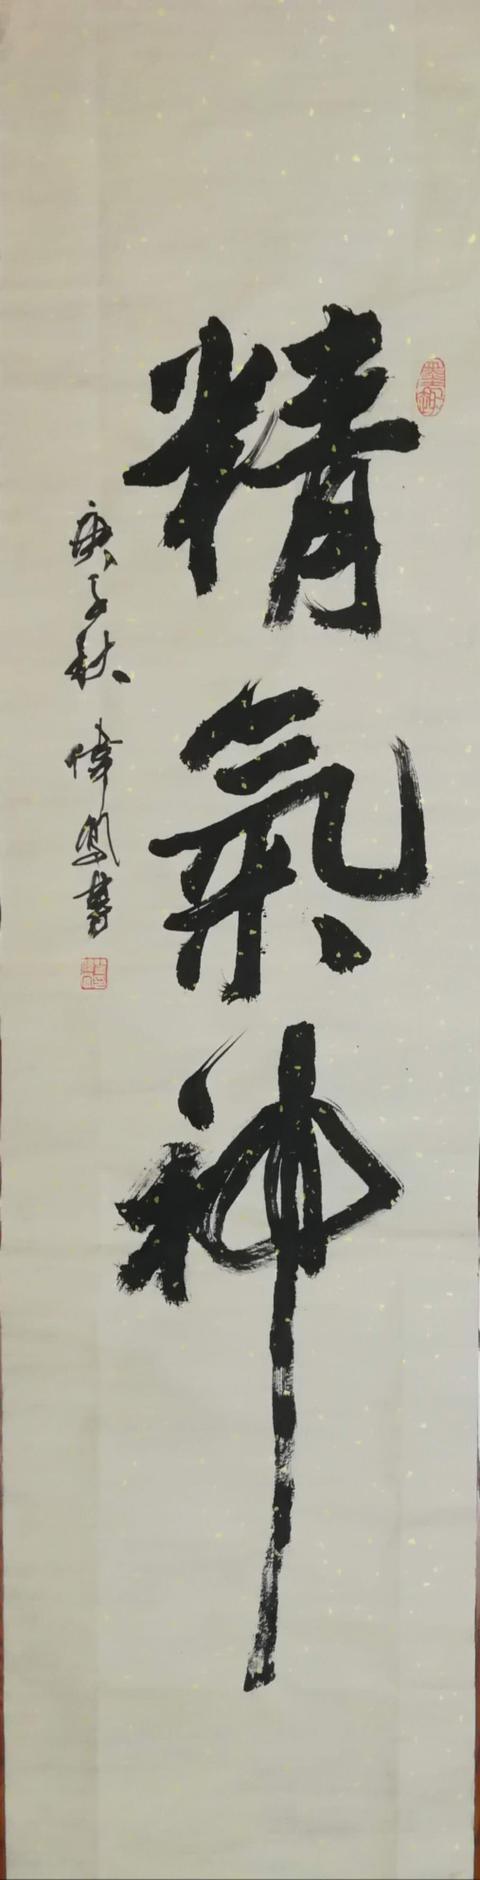 精氣神
庚子秋 偉鳳書